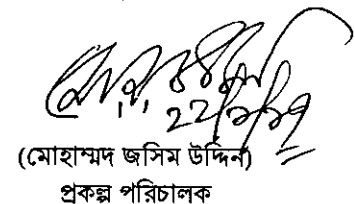 (মোহাম্মদ জসিম উদ্দিন)
প্রকল্প পরিচালক